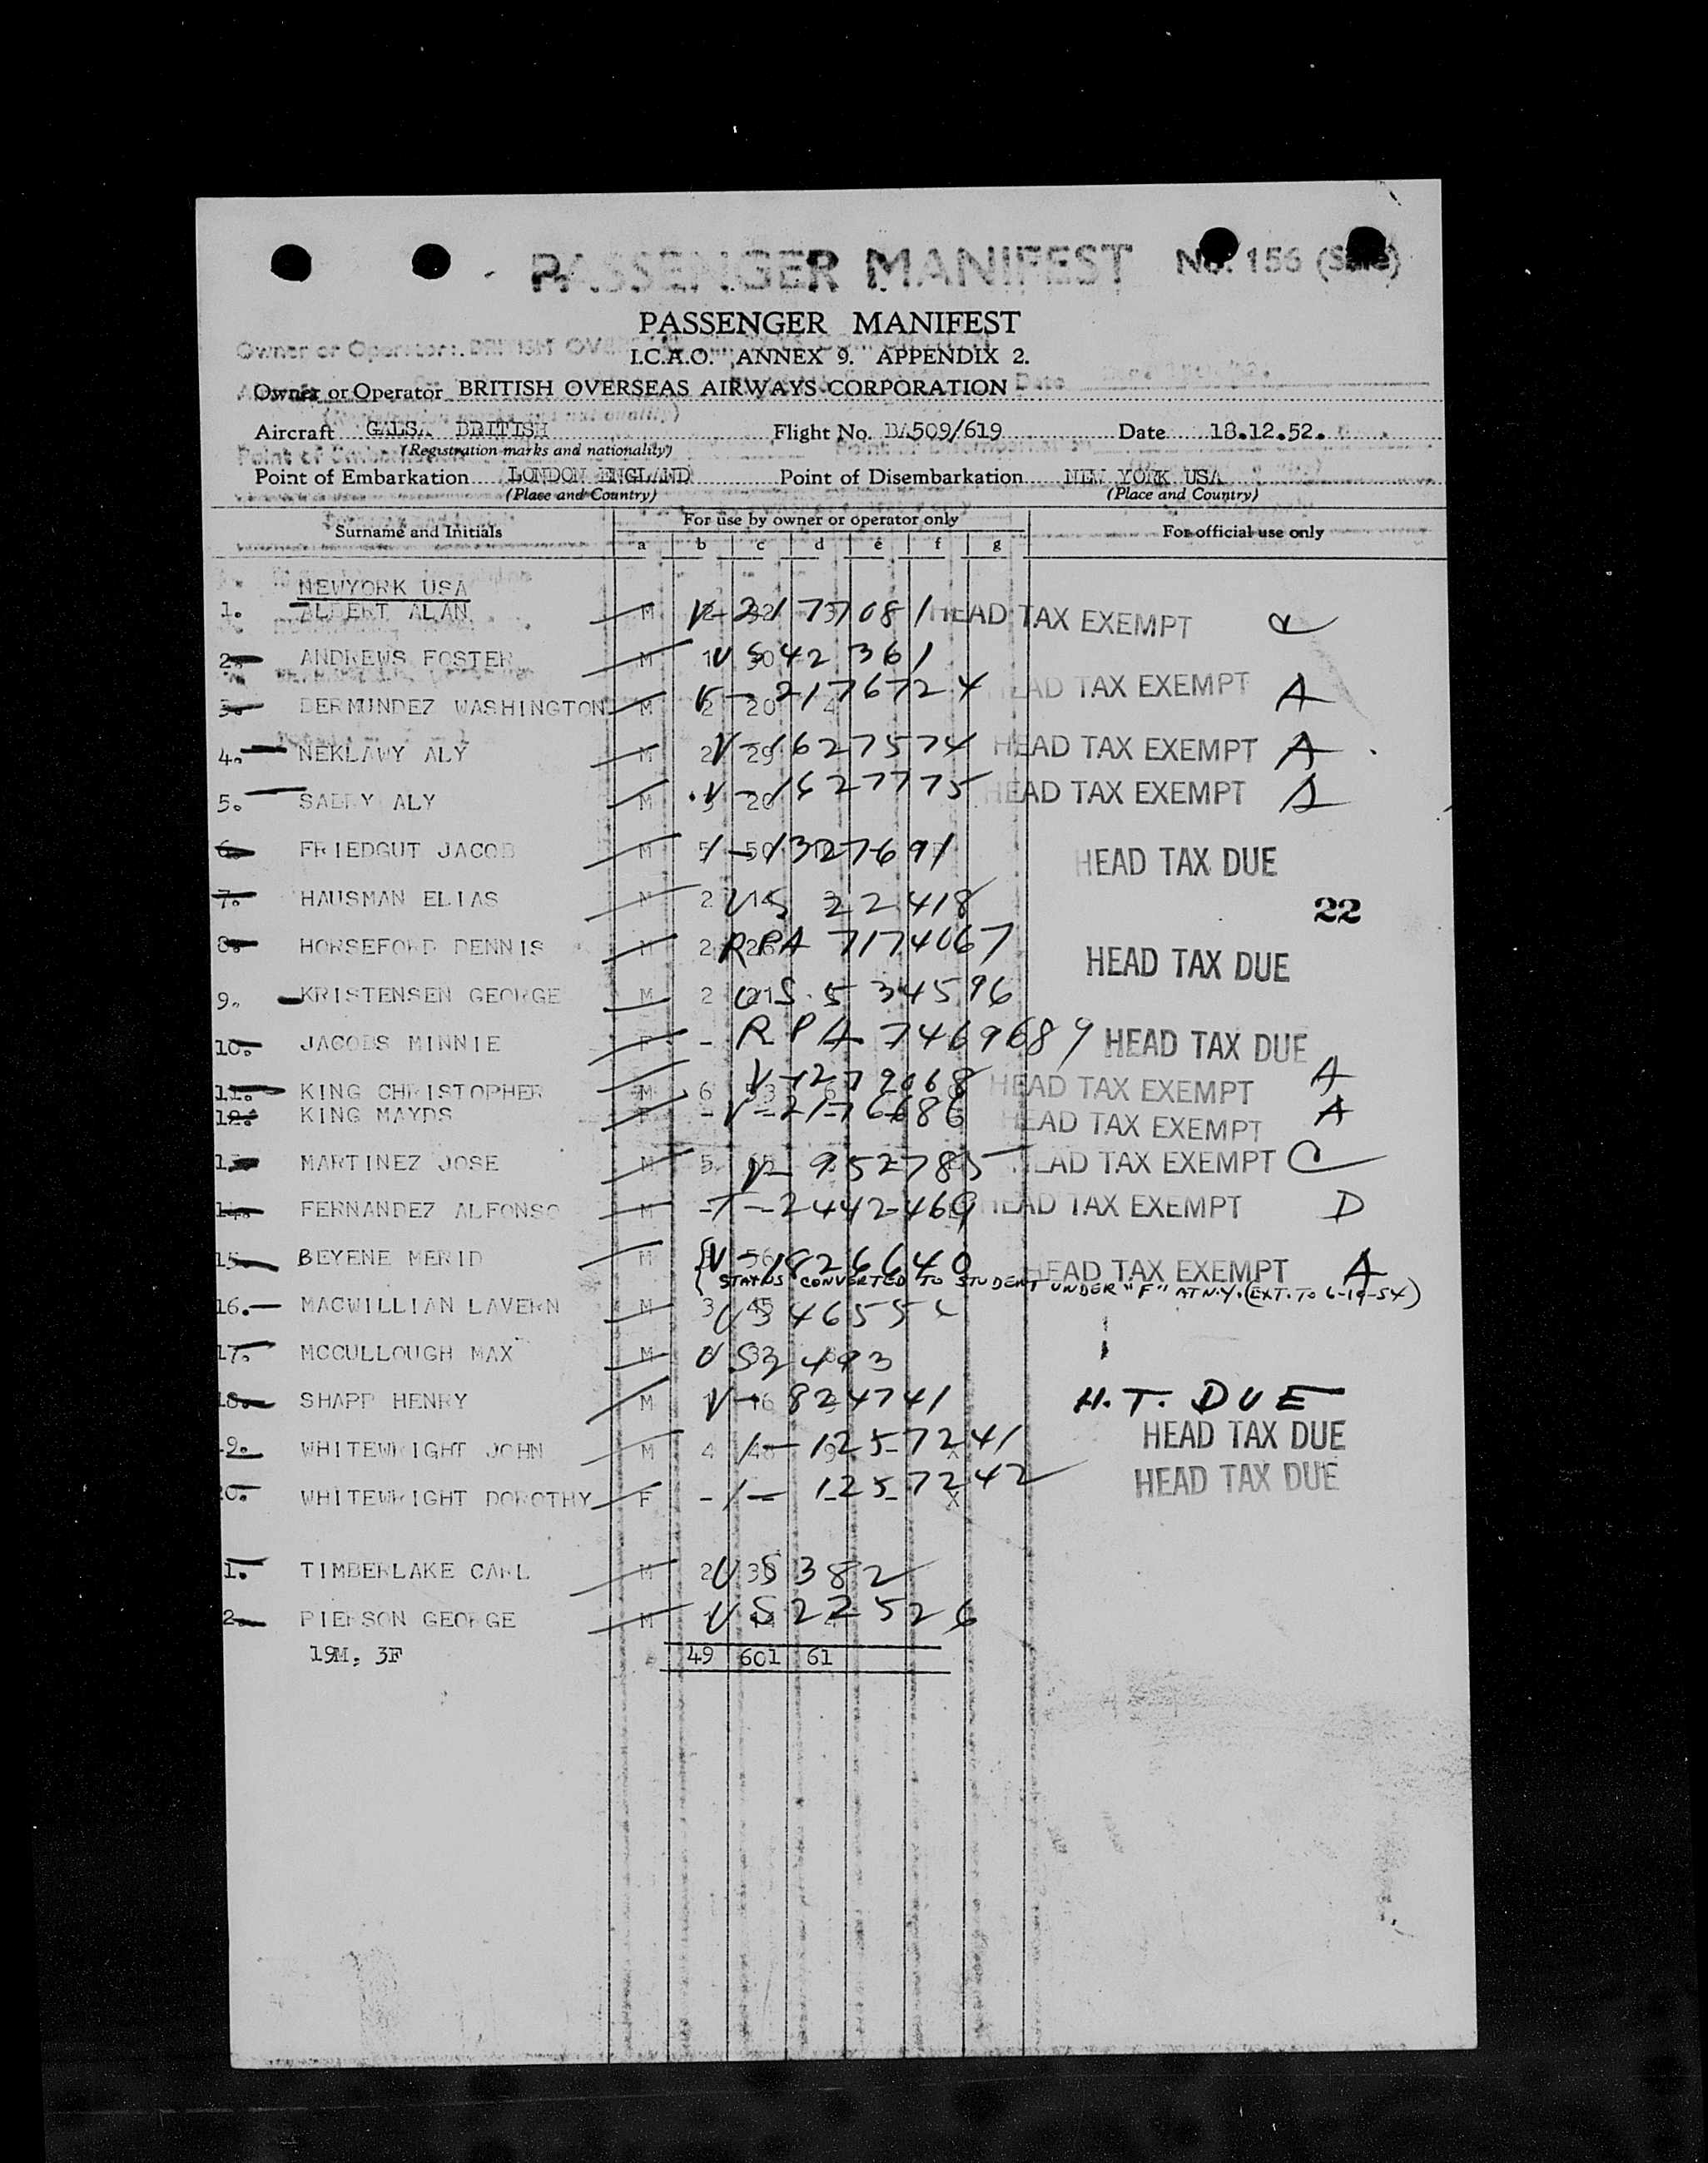 PASSENGER MANIFEST No. 156 (Sale)
PASSENGER MANIFEST
I.C.A.O. ANNEX 9. APPENDIX 2.
Owner or Operator BRITISH OVERSEAS AIRWAYS CORPORATION
Aircraft GALSA BRITISH Flight No. BA509/619 Date 18.12.52.
(Registration marks and nationality)
Point of Embarkation LONDON ENGLAND Point of Disembarkation NEW YORK USA
(Place and Country) (Place and Country)
Surname and Initials For use by owner or operator only For official use only
a b c d e f g
NEWYORK USA
1. ALBERT ALAN M V-2177081 HEAD TAX EXEMPT
2. ANDREWS FOSTER M US 42361
3. BERMUNDEZ WASHINGTON M 2 20 4 V-2176724 HEAD TAX EXEMPT A
4. NEKLAWY ALY M 2 29 V-1627574 HEAD TAX EXEMPT A
5. SABRY ALY M 20 V-1627775 HEAD TAX EXEMPT
6. FRIEDGUT JACOB M 5 50 1-1327691 HEAD TAX DUE
7. HAUSMAN ELIAS M 2 US 22418
22
8. HORSEFORD DENNIS M 2 26 RPA 7174067 HEAD TAX DUE
9. KRISTENSEN GEORGE M 2 US 534596
10. JACOBS MINNIE F - RPA 7469689 HEAD TAX DUE
11. KING CHRISTOPHER M 6 53 6 V-1279068 HEAD TAX EXEMPT A
12. KING MAYDS F - V-2176686 HEAD TAX EXEMPT A
13. MARTINEZ JOSE M 5 V-952785 HEAD TAX EXEMPT C
14. FERNANDEZ ALFONSO M T-2442469 HEAD TAX EXEMPT D
15. BEYENE MERID M 56 V-1826640 HEAD TAX EXEMPT A
STATUS CONVERTED TO STUDENT UNDER "F" AT N.Y. (EXT. TO 6-19-54)
16. MACWILLIAN LAVERN M 3 45 US 4655
17. MCCULLOUGH MAX M US 2493
18. SHAPP HENRY M V-824741 H.T. DUE
19. WHITEWRIGHT JOHN M 4 48 9 X 1-1257241 HEAD TAX DUE
20. WHITEWRIGHT DOROTHY F - X 1-1257242 HEAD TAX DUE
1. TIMBERLAKE CARL M 2 US 382
2. PIERSON GEORGE M US 22526
19M, 3F 49 601 61